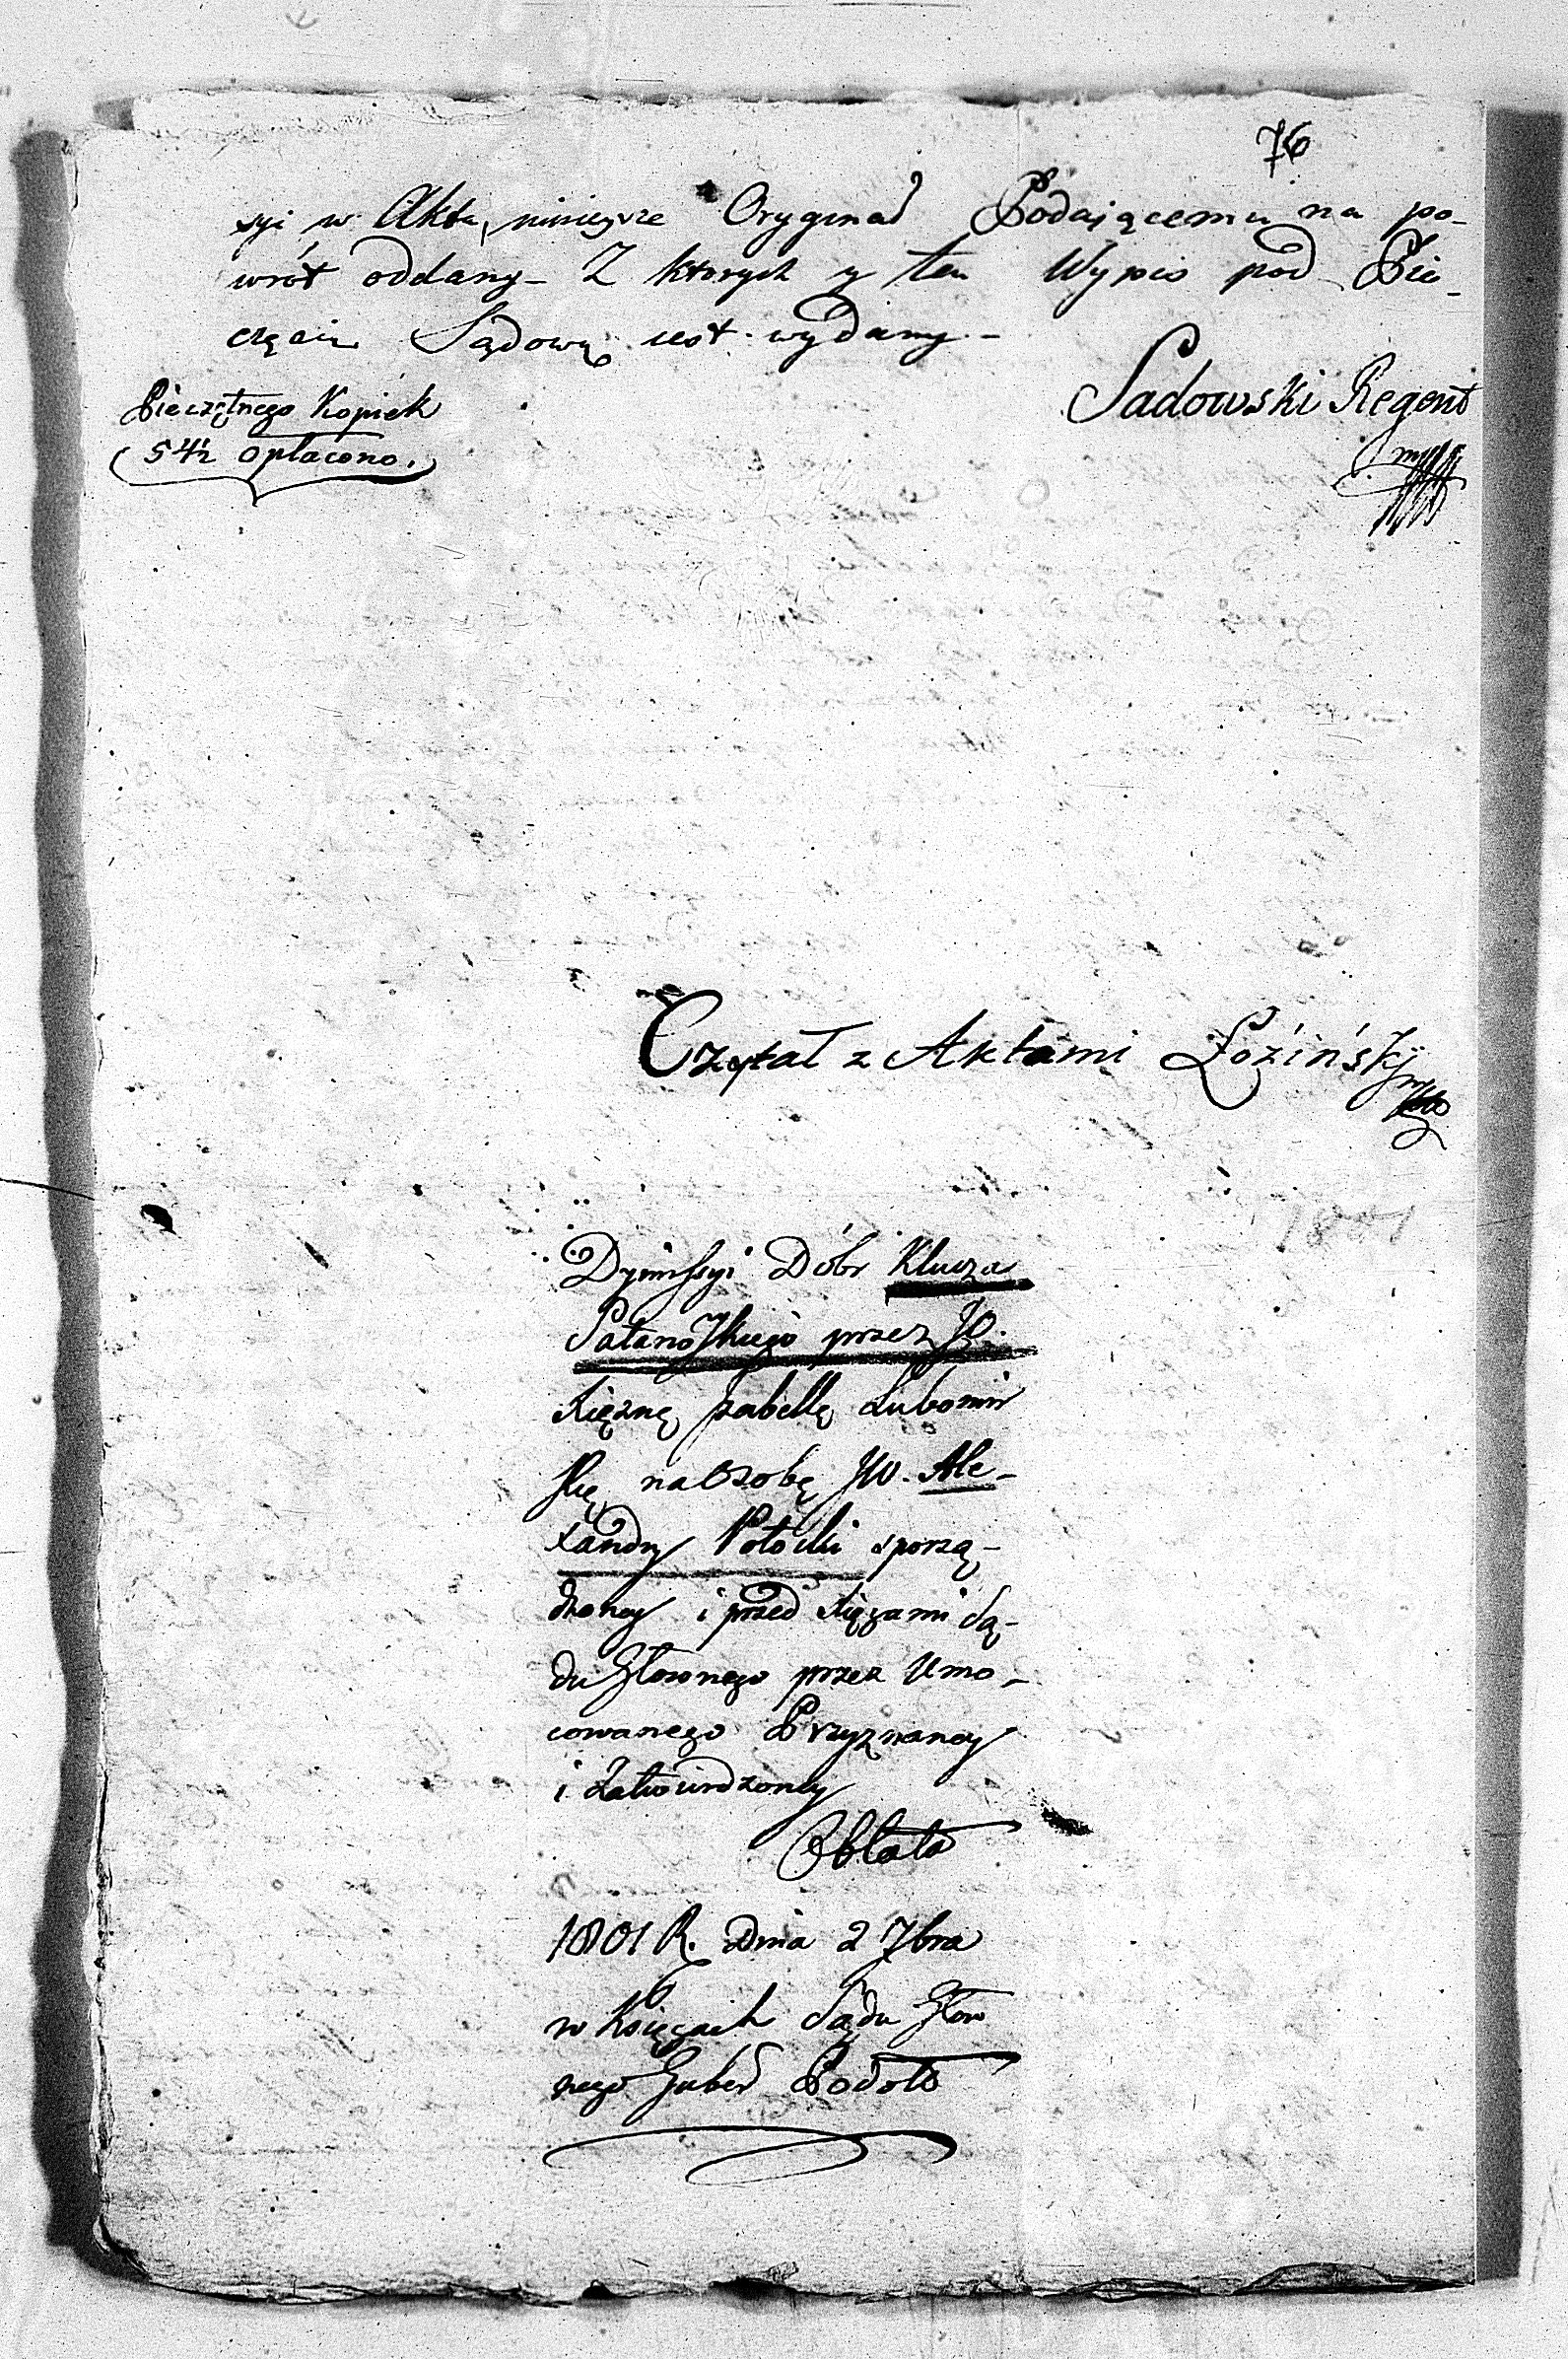 76
syi w Akta ninieysze Oryginał Podaiącemu na po-
wrót oddany – Z ktorych y ten Wypis pod Pie-
częcią Sądową iest wydany –
Sadowski Regent
mp
Pieczętnego Kopiek
54½ opłacono.
Czytał z Aktami Łoziński
mp
1801
Dymissyi Dóbr Klucza
Satanowskiego przez JO.
Xiężnę Izabellę Lubomir
ską na Osobę JW. Ale-
xandry Potocki sporzą-
dzoney i przed Xięgami Są-
du Głownego przez Umo-
cowanego Przyznaney
i Zatwierdzoney
Oblata
1801 R. Dnia 2 7bra
w Księgach Sądu Głow
nego Guber Podols